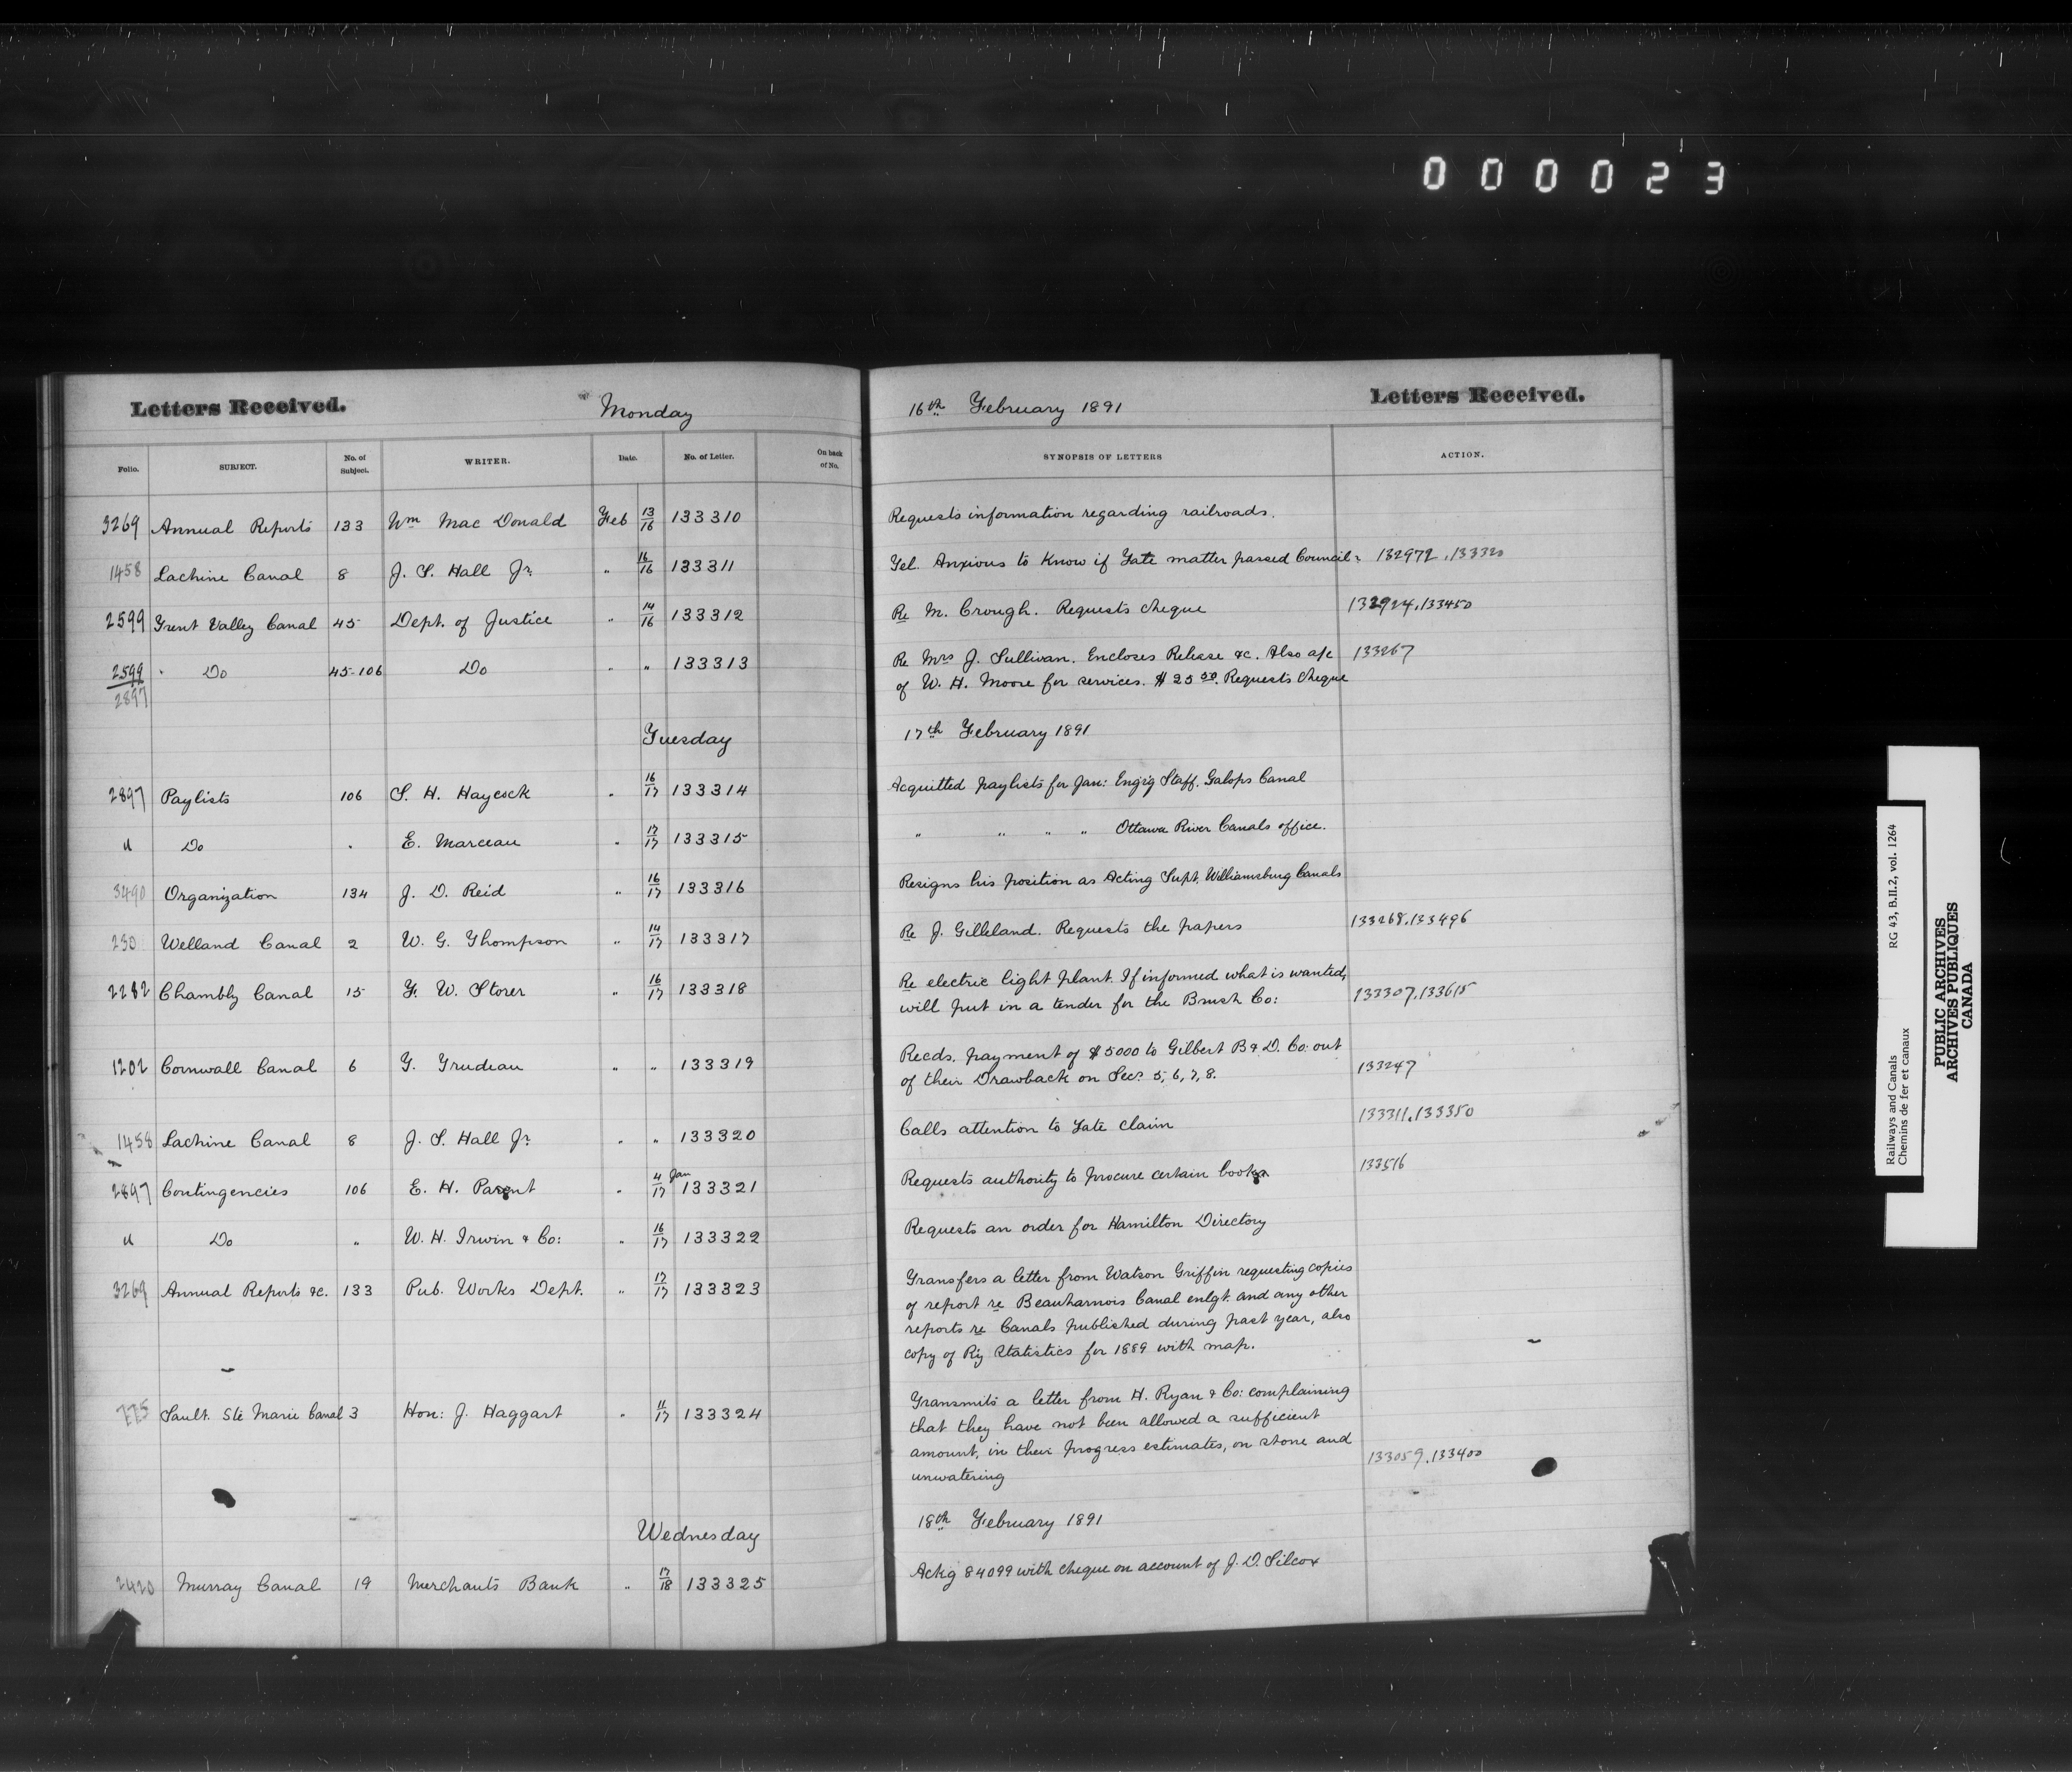 000023
Letters Received. Monday 16th February 1891 Letters Received.
Folio. SUBJECT. No. of Subject. WRITER. Date. No. of Letter. On back of No. SYNOPSIS OF LETTERS ACTION.
3269 Annual Reports 133 Wm Mac Donald Feb 13/16 133310 Requests information regarding railroads.
1458 Lachine Canal 8 J. S. Hall Jr. " 16/16 133311 Tel. Anxious to Know if Tate matter passed Council. 132972, 133320
2599 Trent Valley Canal 45 Dept. of Justice " 14/16 133312 Re M. Crough. Requests cheque 132924, 133450
2599 " Do 45-106 Do " " 133313 Re Mrs J. Sullivan. Encloses Release &c. Also a/c 133267
2897 of W. H. Moore for services. $25.50. Requests cheque
Tuesday 17th February 1891
2897 Paylists 106 S. H. Haycock " 16/17 133314 Acquitted paylists for Jan: Eng'g Staff. Galops Canal
" Do " E. Marceau " 17/17 133315 " " " " Ottawa River Canals office.
3490 Organization 134 J. D. Reid " 16/17 133316 Resigns his position as Acting Supt. Williamsburg Canals
230 Welland Canal 2 W. G. Thompson " 14/17 133317 Re J. Gilleland. Requests the papers 133268, 133496
2282 Chambly Canal 15 F. W. Storer " 16/17 133318 Re electric light plant. If informed what is wanted,
will put in a tender for the Brush Co: 133307, 133615
1202 Cornwall Canal 6 T. Trudeau " " 133319 Recds. payment of $5000 to Gilbert B & D. Co: out
of their Drawback on Secs. 5, 6, 7, 8. 133247
1458 Lachine Canal 8 J. S. Hall Jr. " " 133320 Calls attention to Tate claim 133311, 133350
2897 Contingencies 106 E. H. Parent " 4 Jan/17 133321 Requests authority to procure certain books. 133516
" Do " W. H. Irwin & Co: " 16/17 133322 Requests an order for Hamilton Directory
3269 Annual Reports &c. 133 Pub. Works Dept. " 17/17 133323 Transfers a letter from Watson Griffin requesting copies
of report re Beauharnois Canal enlgt. and any other
reports re Canals published during past year, also
copy of Ry Statistics for 1889 with map.
775 Sault. Ste Marie Canal 3 Hon: J. Haggart " 11/17 133324 Transmits a letter from H. Ryan & Co: complaining
that they have not been allowed a sufficient
amount, in their progress estimates, on stone and 133059, 133400
unwatering
Wednesday 18th February 1891
2420 Murray Canal 19 Merchants Bank " 17/18 133325 Ackg 84099 with cheque on account of J. D. Silcox
Railways and Canals RG 43, B.II.2, vol. 1264
Chemins de fer et canaux
PUBLIC ARCHIVES
ARCHIVES PUBLIQUES
CANADA